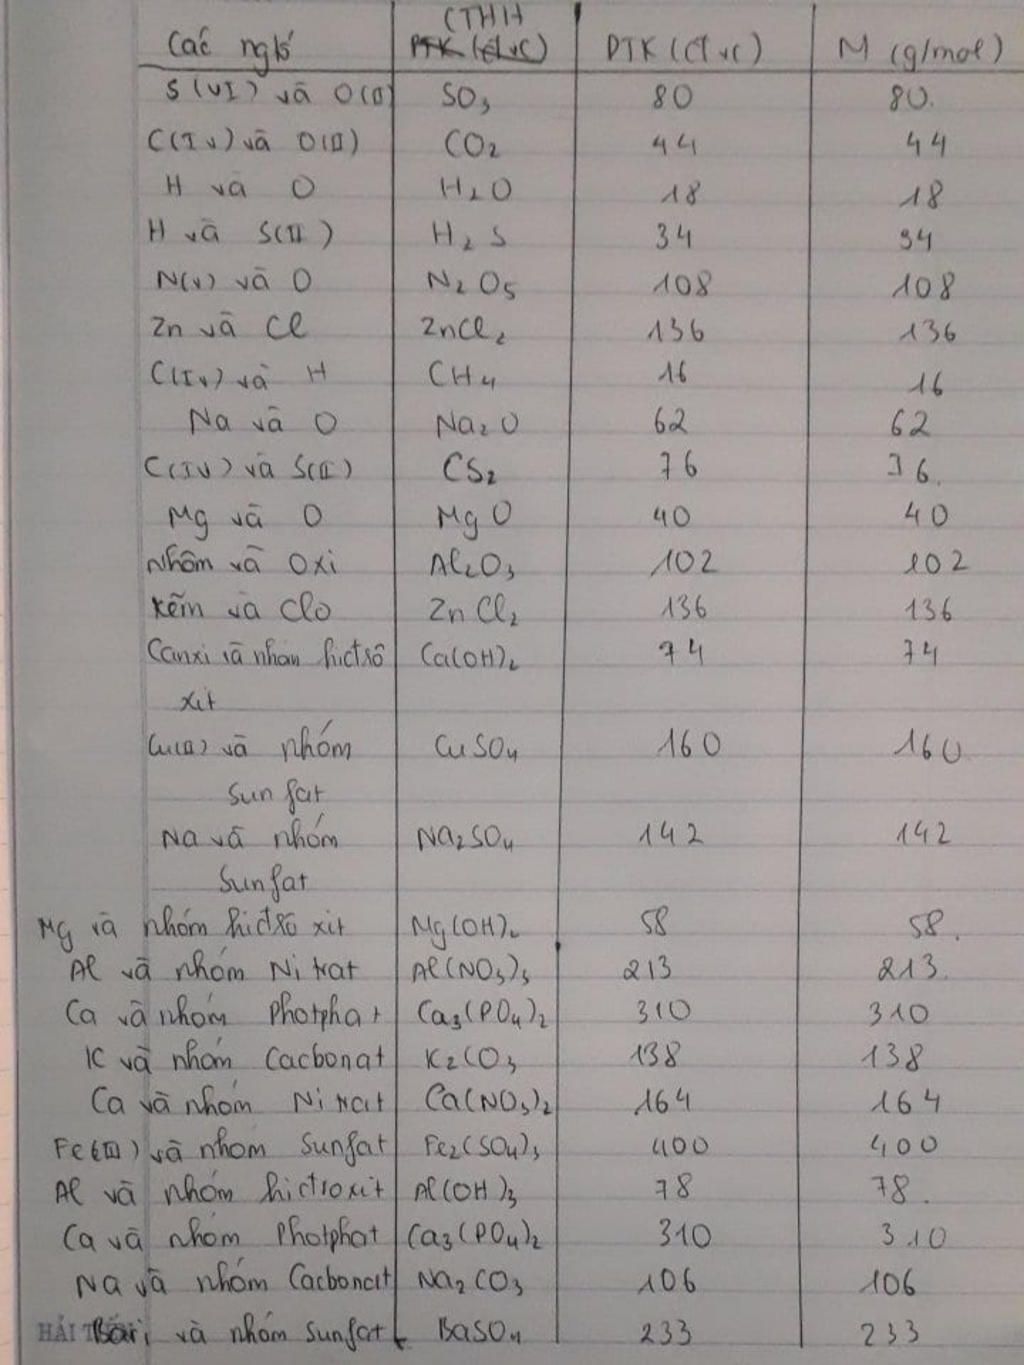 Các ngtố CTHH PTK (đvC) PTK (đvC) M (g/mol)
S(VI) và O(II) SO3 80 80.
C(IV) và O(II) CO2 44 44
H và O H2O 18 18
H và S(II) H2S 34 34
N(V) và O N2O5 108 108
Zn và Cl ZnCl2 136 136
C(IV) và H CH4 16 16
Na và O Na2O 62 62
C(IV) và S(II) CS2 76 76.
Mg và O MgO 40 40
Nhôm và Oxi Al2O3 102 102
Kẽm và Clo ZnCl2 136 136
Canxi và nhóm hiđrô Ca(OH)2 74 74
xit
Cu(II) và nhóm CuSO4 160 160
Sunfat
Na và nhóm Na2SO4 142 142
Sunfat
Mg và nhóm hiđrô xit Mg(OH)2 58 58.
Al và nhóm Nitrat Al(NO3)3 213 213.
Ca và nhóm Photphat Ca3(PO4)2 310 310
K và nhóm Cacbonat K2CO3 138 138
Ca và nhóm Nitrat Ca(NO3)2 164 164
Fe(III) và nhóm Sunfat Fe2(SO4)3 400 400
Al và nhóm hiđroxit Al(OH)3 78 78.
Ca và nhóm Photphat Ca3(PO4)2 310 310
Na và nhóm Cacbonat Na2CO3 106 106
HẢI Bari và nhóm Sunfat BaSO4 233 233